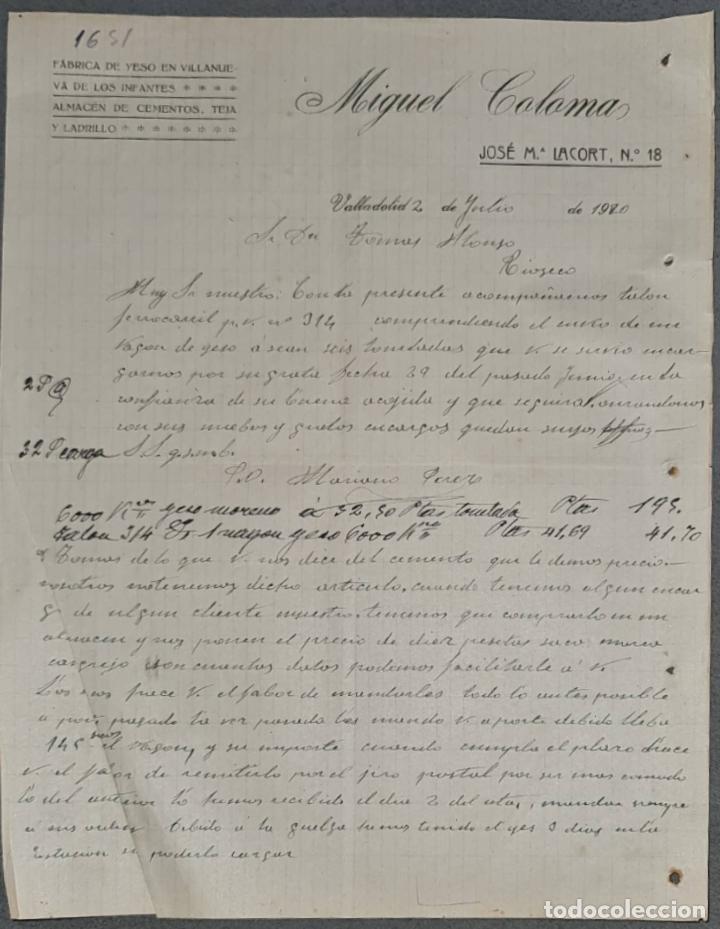 1651
FÁBRICA DE YESO EN VILLANUE-
VA DE LOS INFANTES * * * *
ALMACÉN DE CEMENTOS, TEJA
Y LADRILLO * * * * * * * *
Miguel Coloma
JOSÉ M.ª LACORT, N.º 18
Valladolid 2 de Julio de 1920
Sr Dn Tomas Alonso
Rioseco
Muy Sr nuestro: Con la presente acompañamos talon
ferrocarril p.v. nº 314 comprendiendo el envio de un
vagon de yeso ó sean seis toneladas que V. se sirvio encar
garnos por su grata fecha 29 del pasado Junio, en la
2 P
confianza de su buena acojida y que seguira honrandonos
con sus nuebos y gratos encargos quedan suyos affmos
32 P carga S. S. q.s.m.b.
P.O. Mariano Perez
6000 K yeso moreno á 32,50 Ptas tonelada Ptas 195.
Talon 314 1 vagon yeso 6000 K Ptas 41,69 41,70
Tomas de lo que V. nos dice del cemento que le demos precio
nosotros no tenemos dicho articulo, cuando tenemos algun encar
go de algun cliente nuestro tenemos que comprarlo en un
almacen y nos ponen el precio de diez pesetas saco marca
cangrejo son cuantos datos podemos facilitarle á V.
Los sacos hace V. el fabor de mandarles todo lo antes posible
á porte pagado la vez pasada les mando V. á porte debido lleba
145 sacos el vagon, y su importe cuando cumpla el plazo hace
V. el fabor de remitirlo por el jiro postal por ser mas comodo
lo del anterior lo hemos recibido el dia 2 del actual, mandar siempre
á sus ordenes Debido á la guelga hemos tenido el yeso 3 dias en la
Estacion sin poderlo cargar
todocoleccion.net